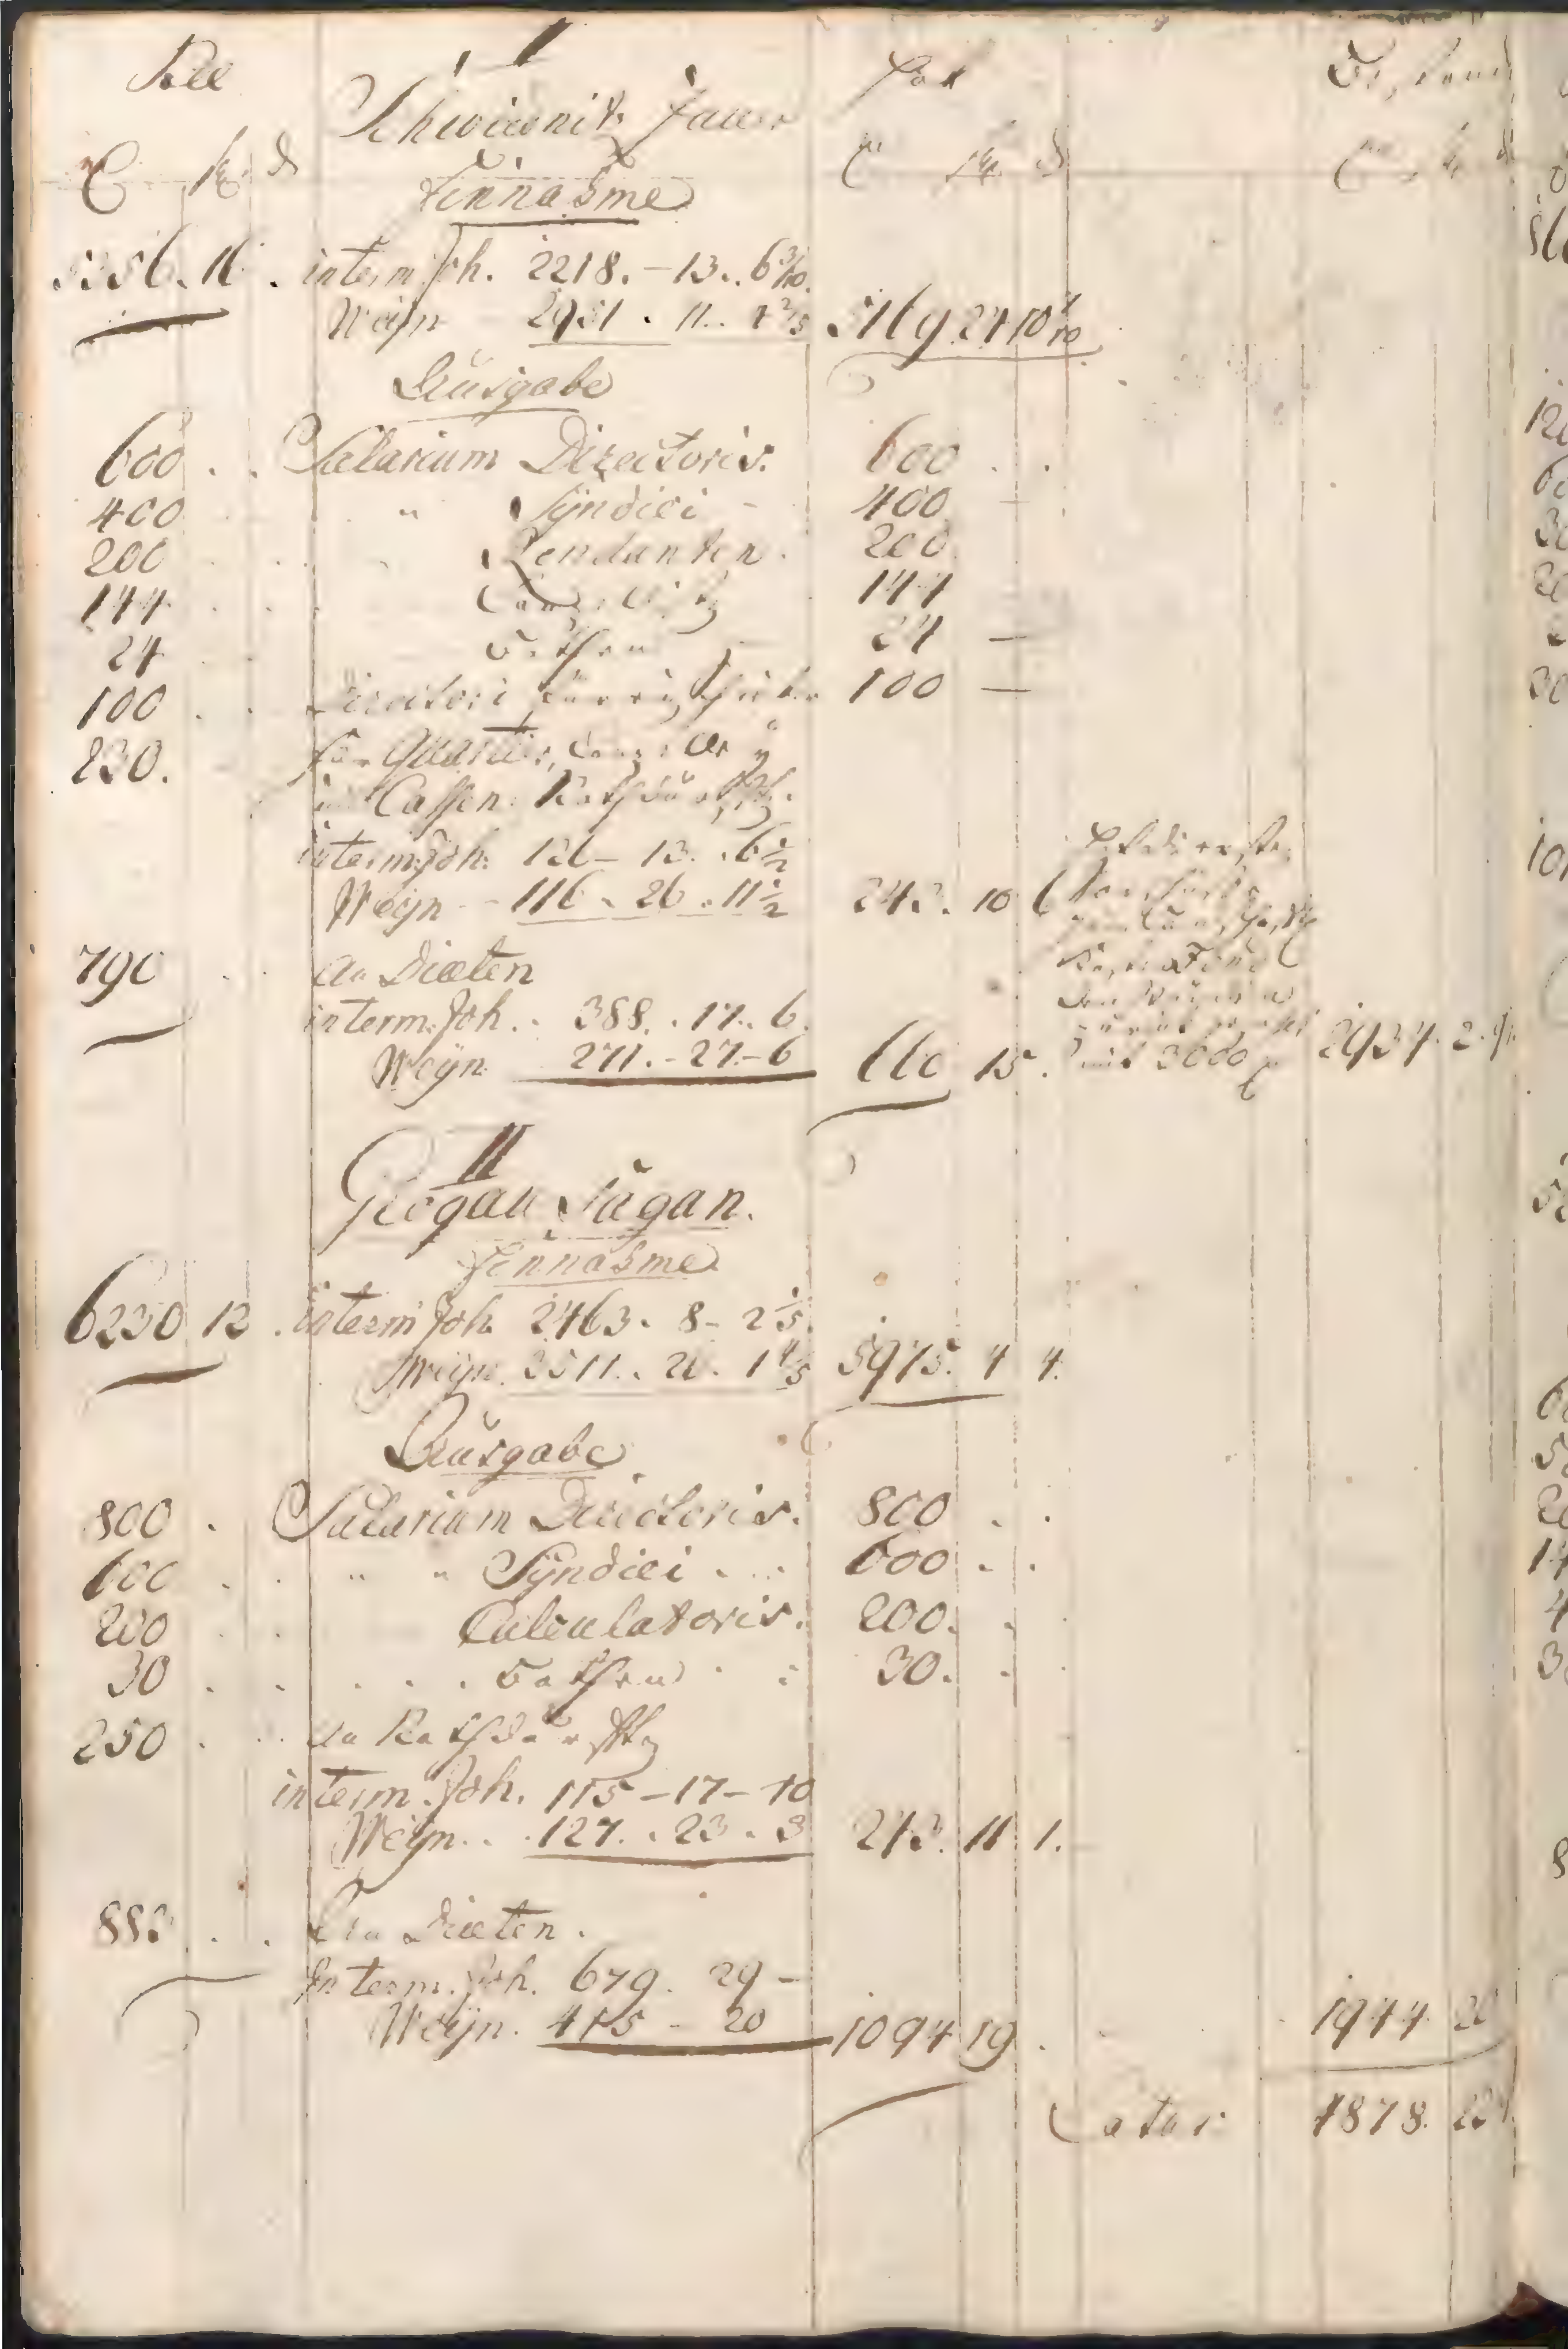 I
Soll Schweidnitz Jauer Hat Bestand
Einnahme
5256. 16. interm. Joh. 2218. – 13. 6 3/10.
Weyn 2951. 11. 4 2/5 5169 24 10 7/10
Ausgabe
600 . . Salarium Directoris. 600 . .
400 " Syndici - 400 -
200 . . Rendanten. 200
144 . . Canzellisty 144
24 . . Bothen 24 —
100 . . Directori 100 —
230. für Quartier, Canzelley
und Cassen Nothdürfft.
interm. Joh. 126 – 13. . 6 1/2
Weyn - 116 . 26 . 11 1/2 243. 10 6
790 . An Diæten
interm. Joh. . 388. . 17. . 6.
Weyn 271. – 27. – 6 660 15.
mit 3000 2934. 2. 9
II
Glogau Sagan.
Einnahme
6230 12 . interm Joh. 2463. 8 – 2 1/5.
Weyn. 3511. . 26. 1 4/5 5975. 4 4.
Ausgabe
800 . Salarium Directoris. 800 . .
600 . . " " Syndici . . . 600 . .
200 . . Calculatoris. 200. .
30 . . . . . Bothen 30. . .
250 . . An Nothdürffty
interm. Joh. 115 – 17 – 10
Weyn. . . 127. . 23 . 3 243. 11 1.
882 . . An Diæten.
Interm. Joh. 679. 29 –
Weyn. 415 – 20 1094 19 . 1944. 20
Latus 4878. 22